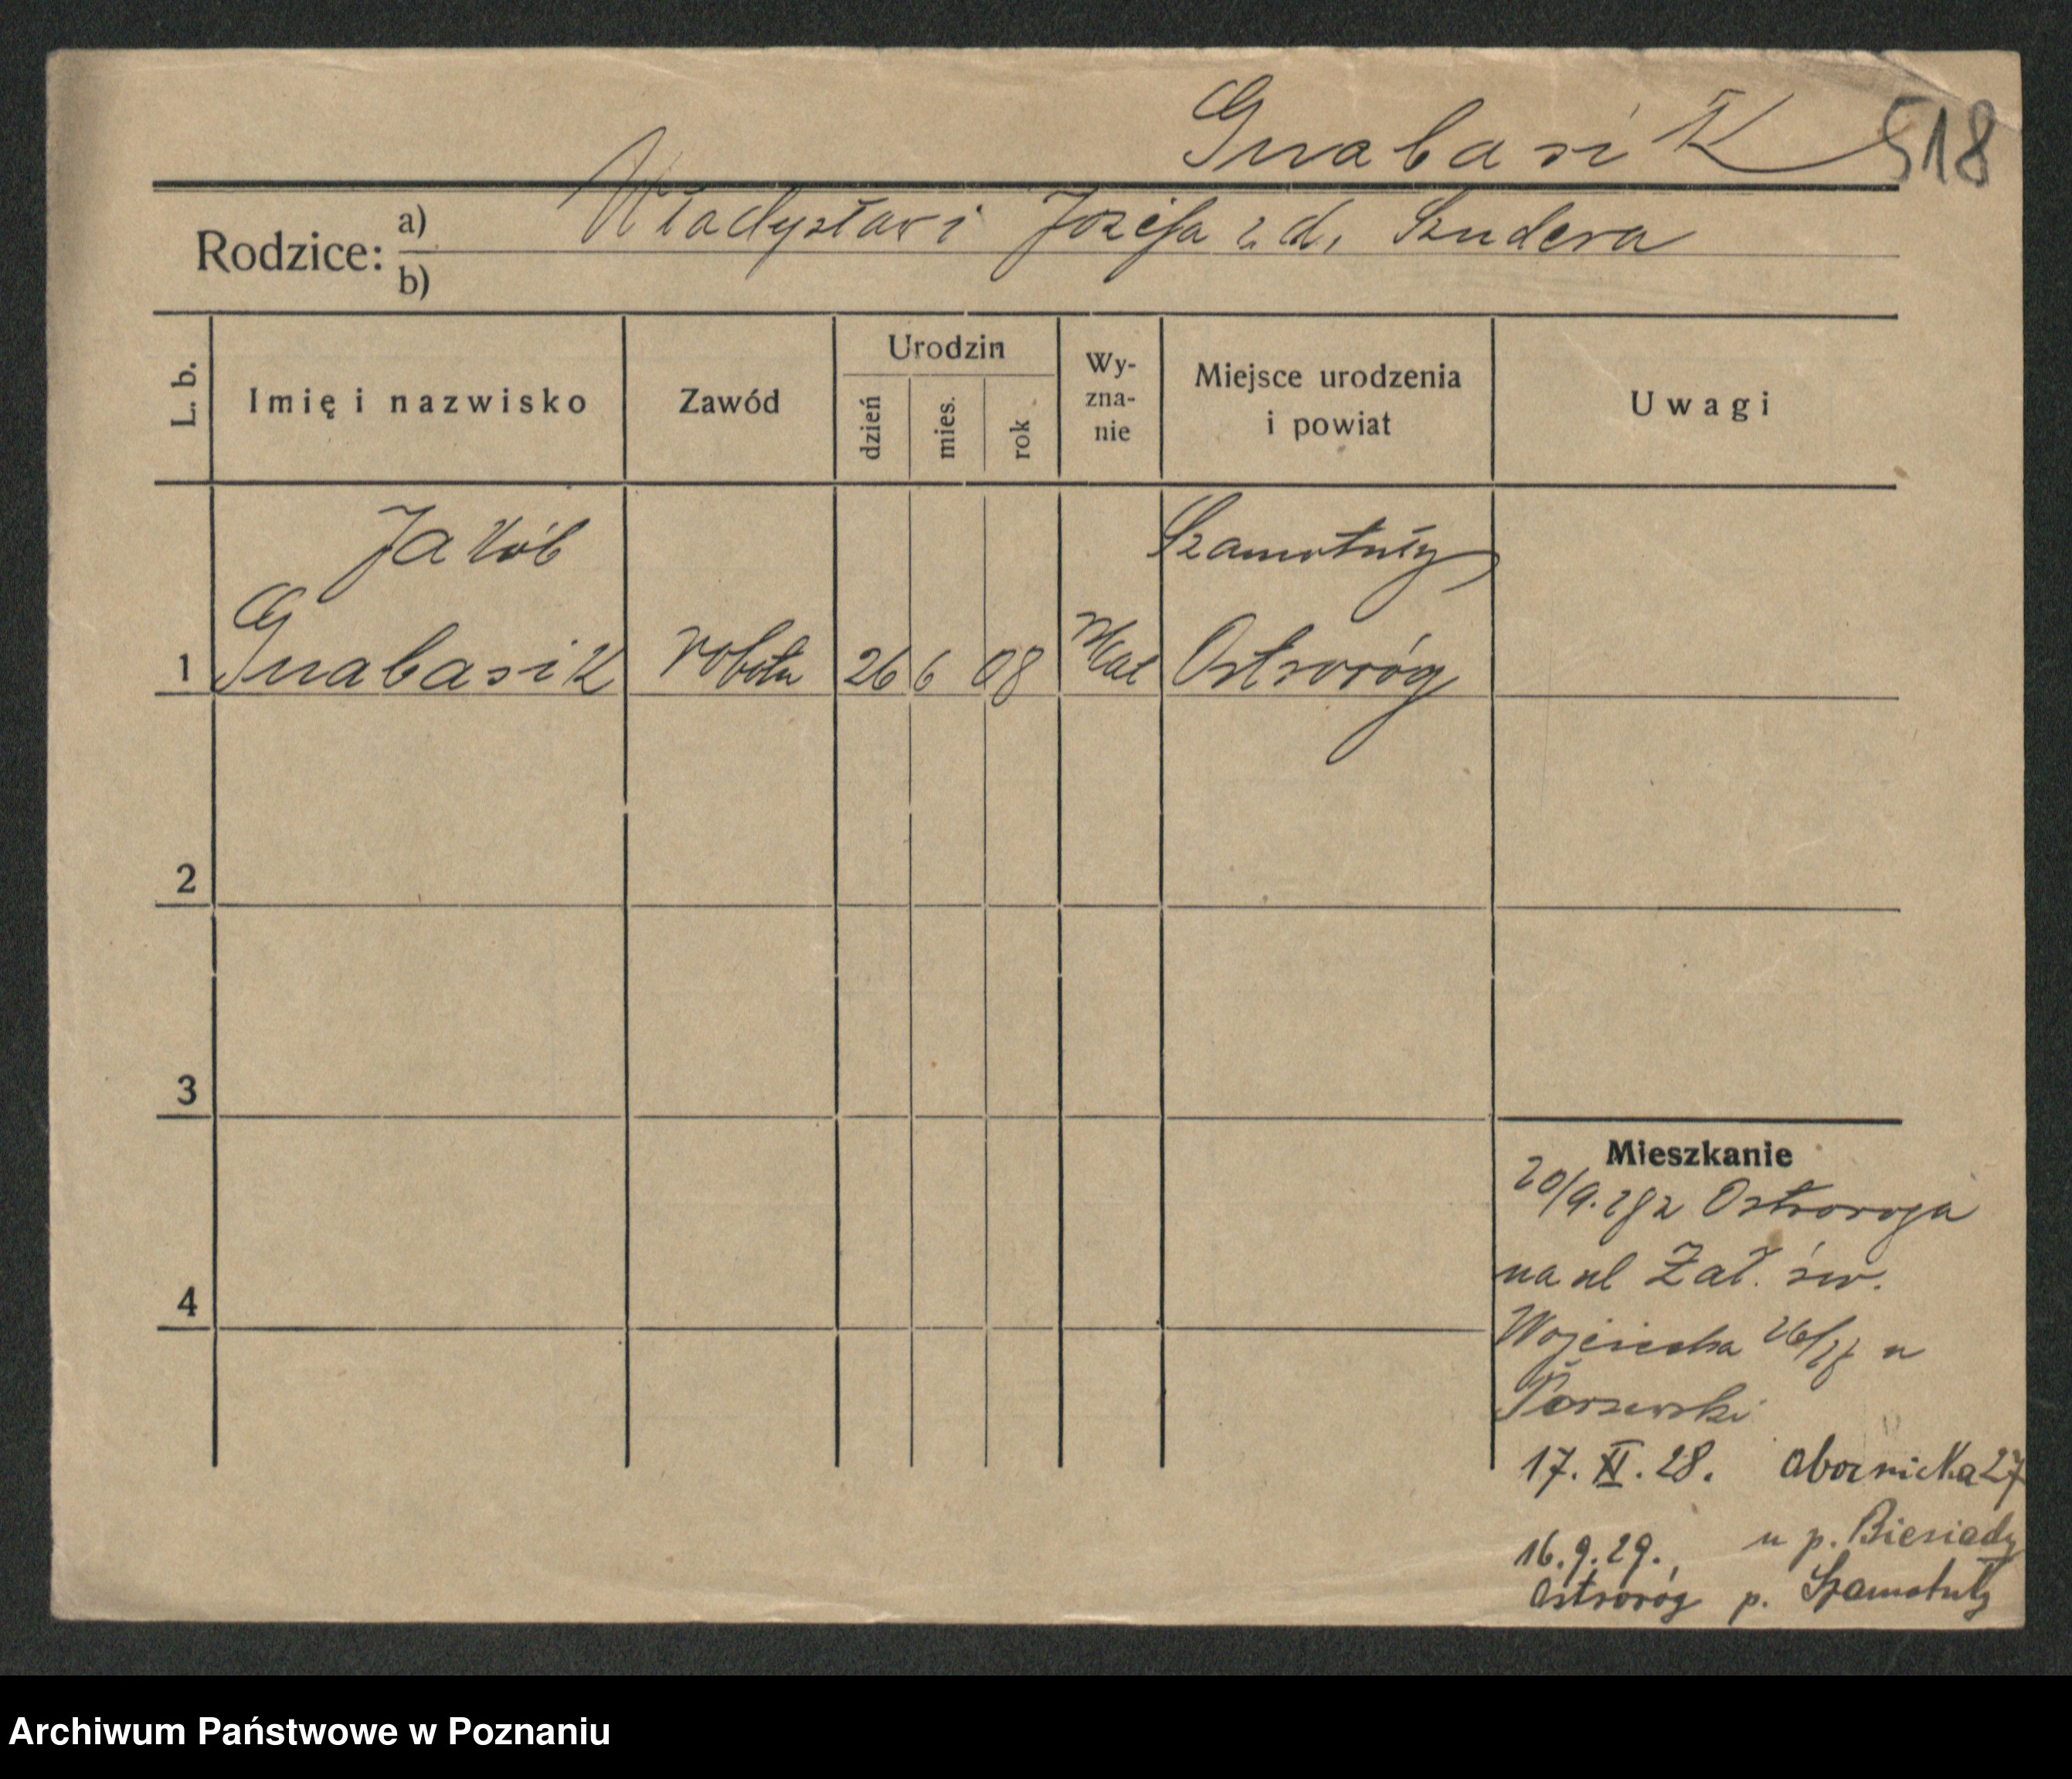 Gnabasik 518
Rodzice: a) Władysław i Józefa z d. Szudera
b)
L. b. Imię i nazwisko Zawód Urodzin dzień mies. rok Wy-zna-nie Miejsce urodzenia i powiat Uwagi
Jakób Szamotuły
1 Gnabasik robotn 26 6 08 kat Ostroróg
2
3
4
Mieszkanie
20/9.28 z Ostroroga
na ul Zał. św.
Wojciecha u
17. XI. 28. Obornicka 27
u p. Biesiady
16.9.29.
Ostroróg p. Szamotuły
Archiwum Państwowe w Poznaniu